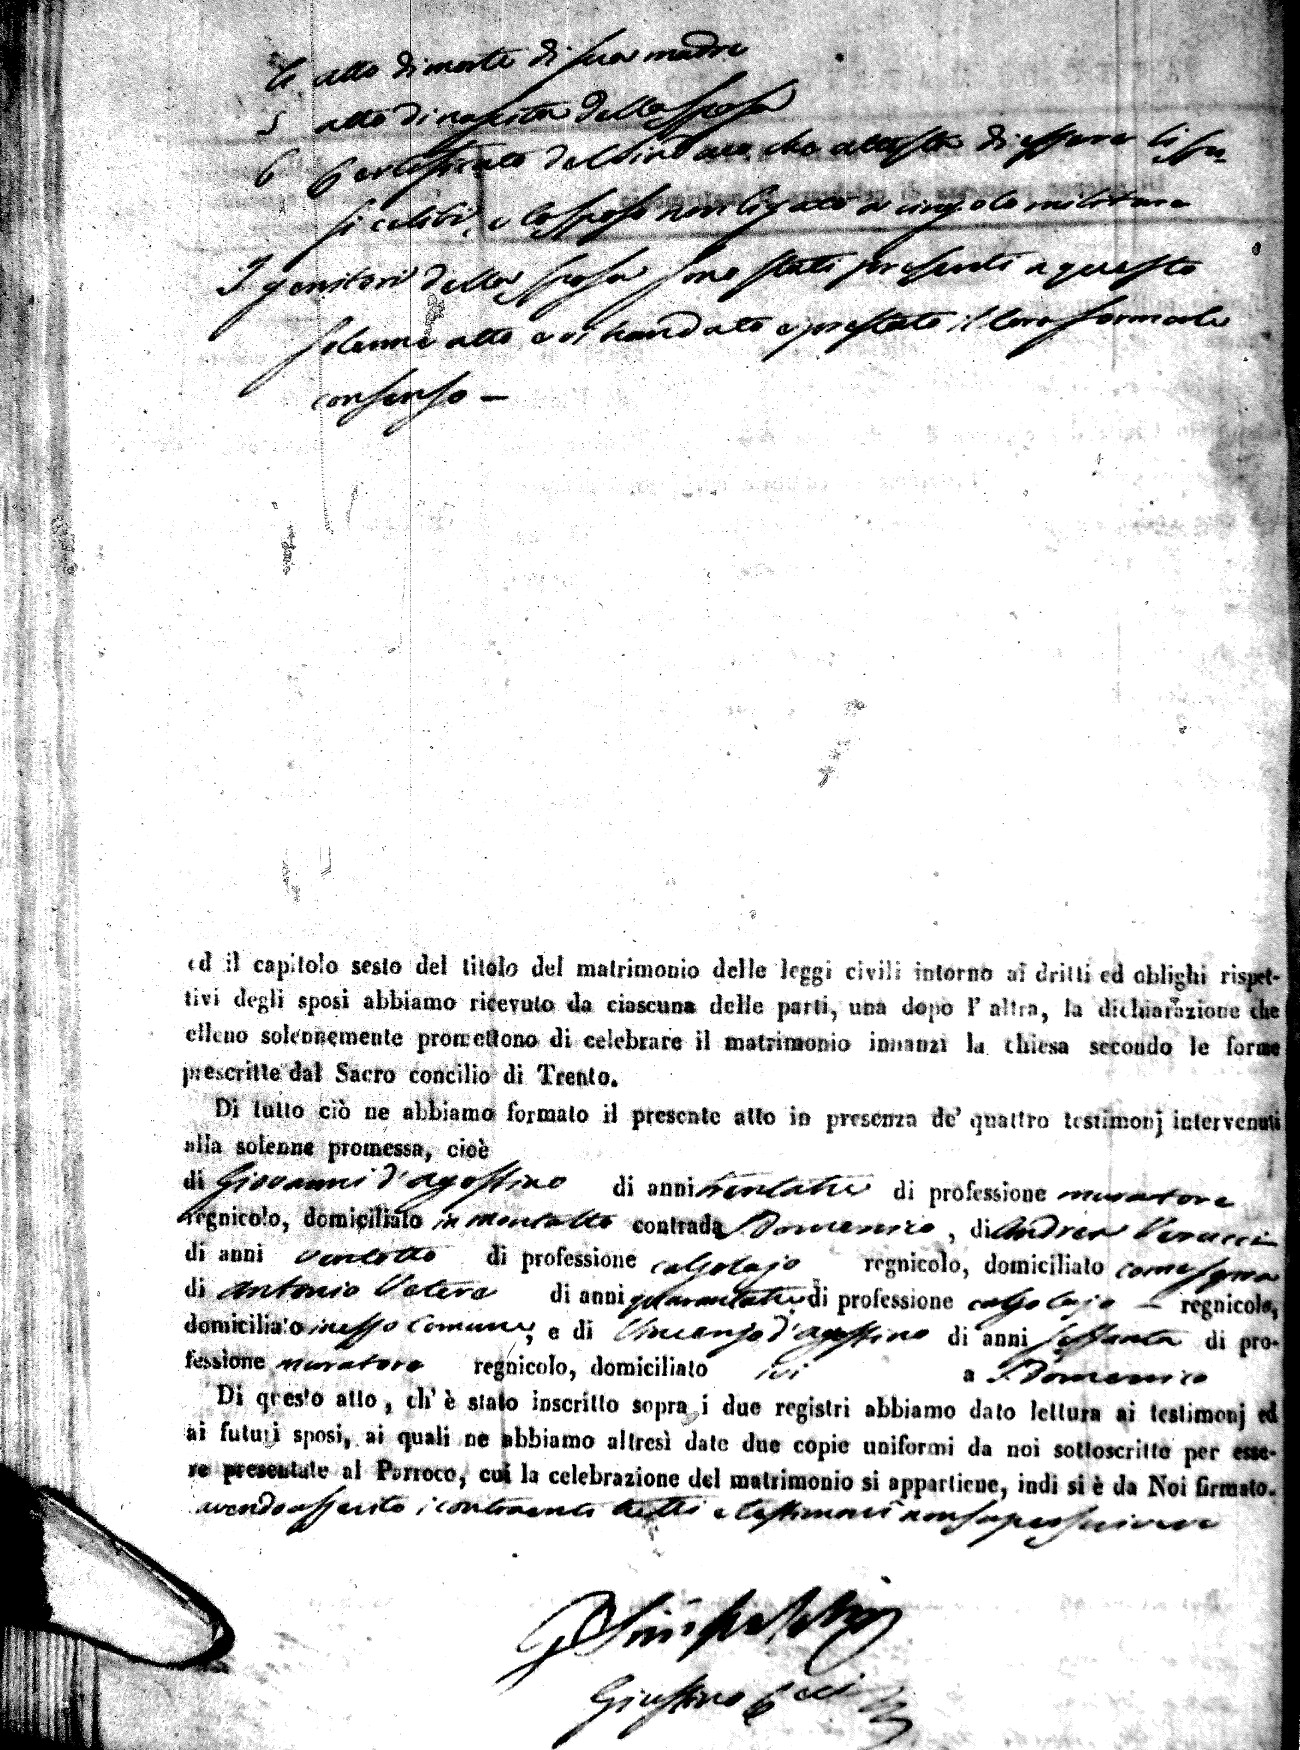 4 atto di morte di sua madre
5 atto di nascita della sposa
6 Certificato del Sindaco che attesta di essere li spo
si celibi, e lo sposo non ligato a cingolo militare
I genitori della sposa sono stati presenti a questo
solenne atto e vi han dato e prestato il loro formale
consenso —
ed il capitolo sesto del titolo del matrimonio delle leggi civili intorno ai dritti ed oblighi rispet-
tivi degli sposi abbiamo ricevuto da ciascuna delle parti, una dopo l' altra, la dichiarazione che
elleno solennemente promettono di celebrare il matrimonio innanzi la chiesa secondo le forme
prescritte dal Sacro concilio di Trento.
Di tutto ciò ne abbiamo formato il presente atto in presenza de' quattro testimonj intervenuti
alla solenne promessa, cioè
di Giovanni d'agostino di anni trentatre di professione muratore
regnicolo, domiciliato in Montalto contrada S. Domenico, di Andrea Veracci
di anni ventotto di professione calzolajo regnicolo, domiciliato come sopra
di Antonio Vetere di anni quarantatre di professione calzolajo — regnicolo,
domiciliato in esso Comune, e di Vincenzo d'agostino di anni sessanta di pro-
fessione muratore regnicolo, domiciliato ivi a S. Domenico
Di questo atto, ch' è stato inscritto sopra i due registri abbiamo dato lettura ai testimonj ed
ai futuri sposi, ai quali ne abbiamo altresì date due copie uniformi da noi sottoscritte per esse-
re presentate al Parroco, cui la celebrazione del matrimonio si appartiene, indi si è da Noi firmato.
avendo asserito i contraenti tutti e testimoni non saper scrivere
Giustino